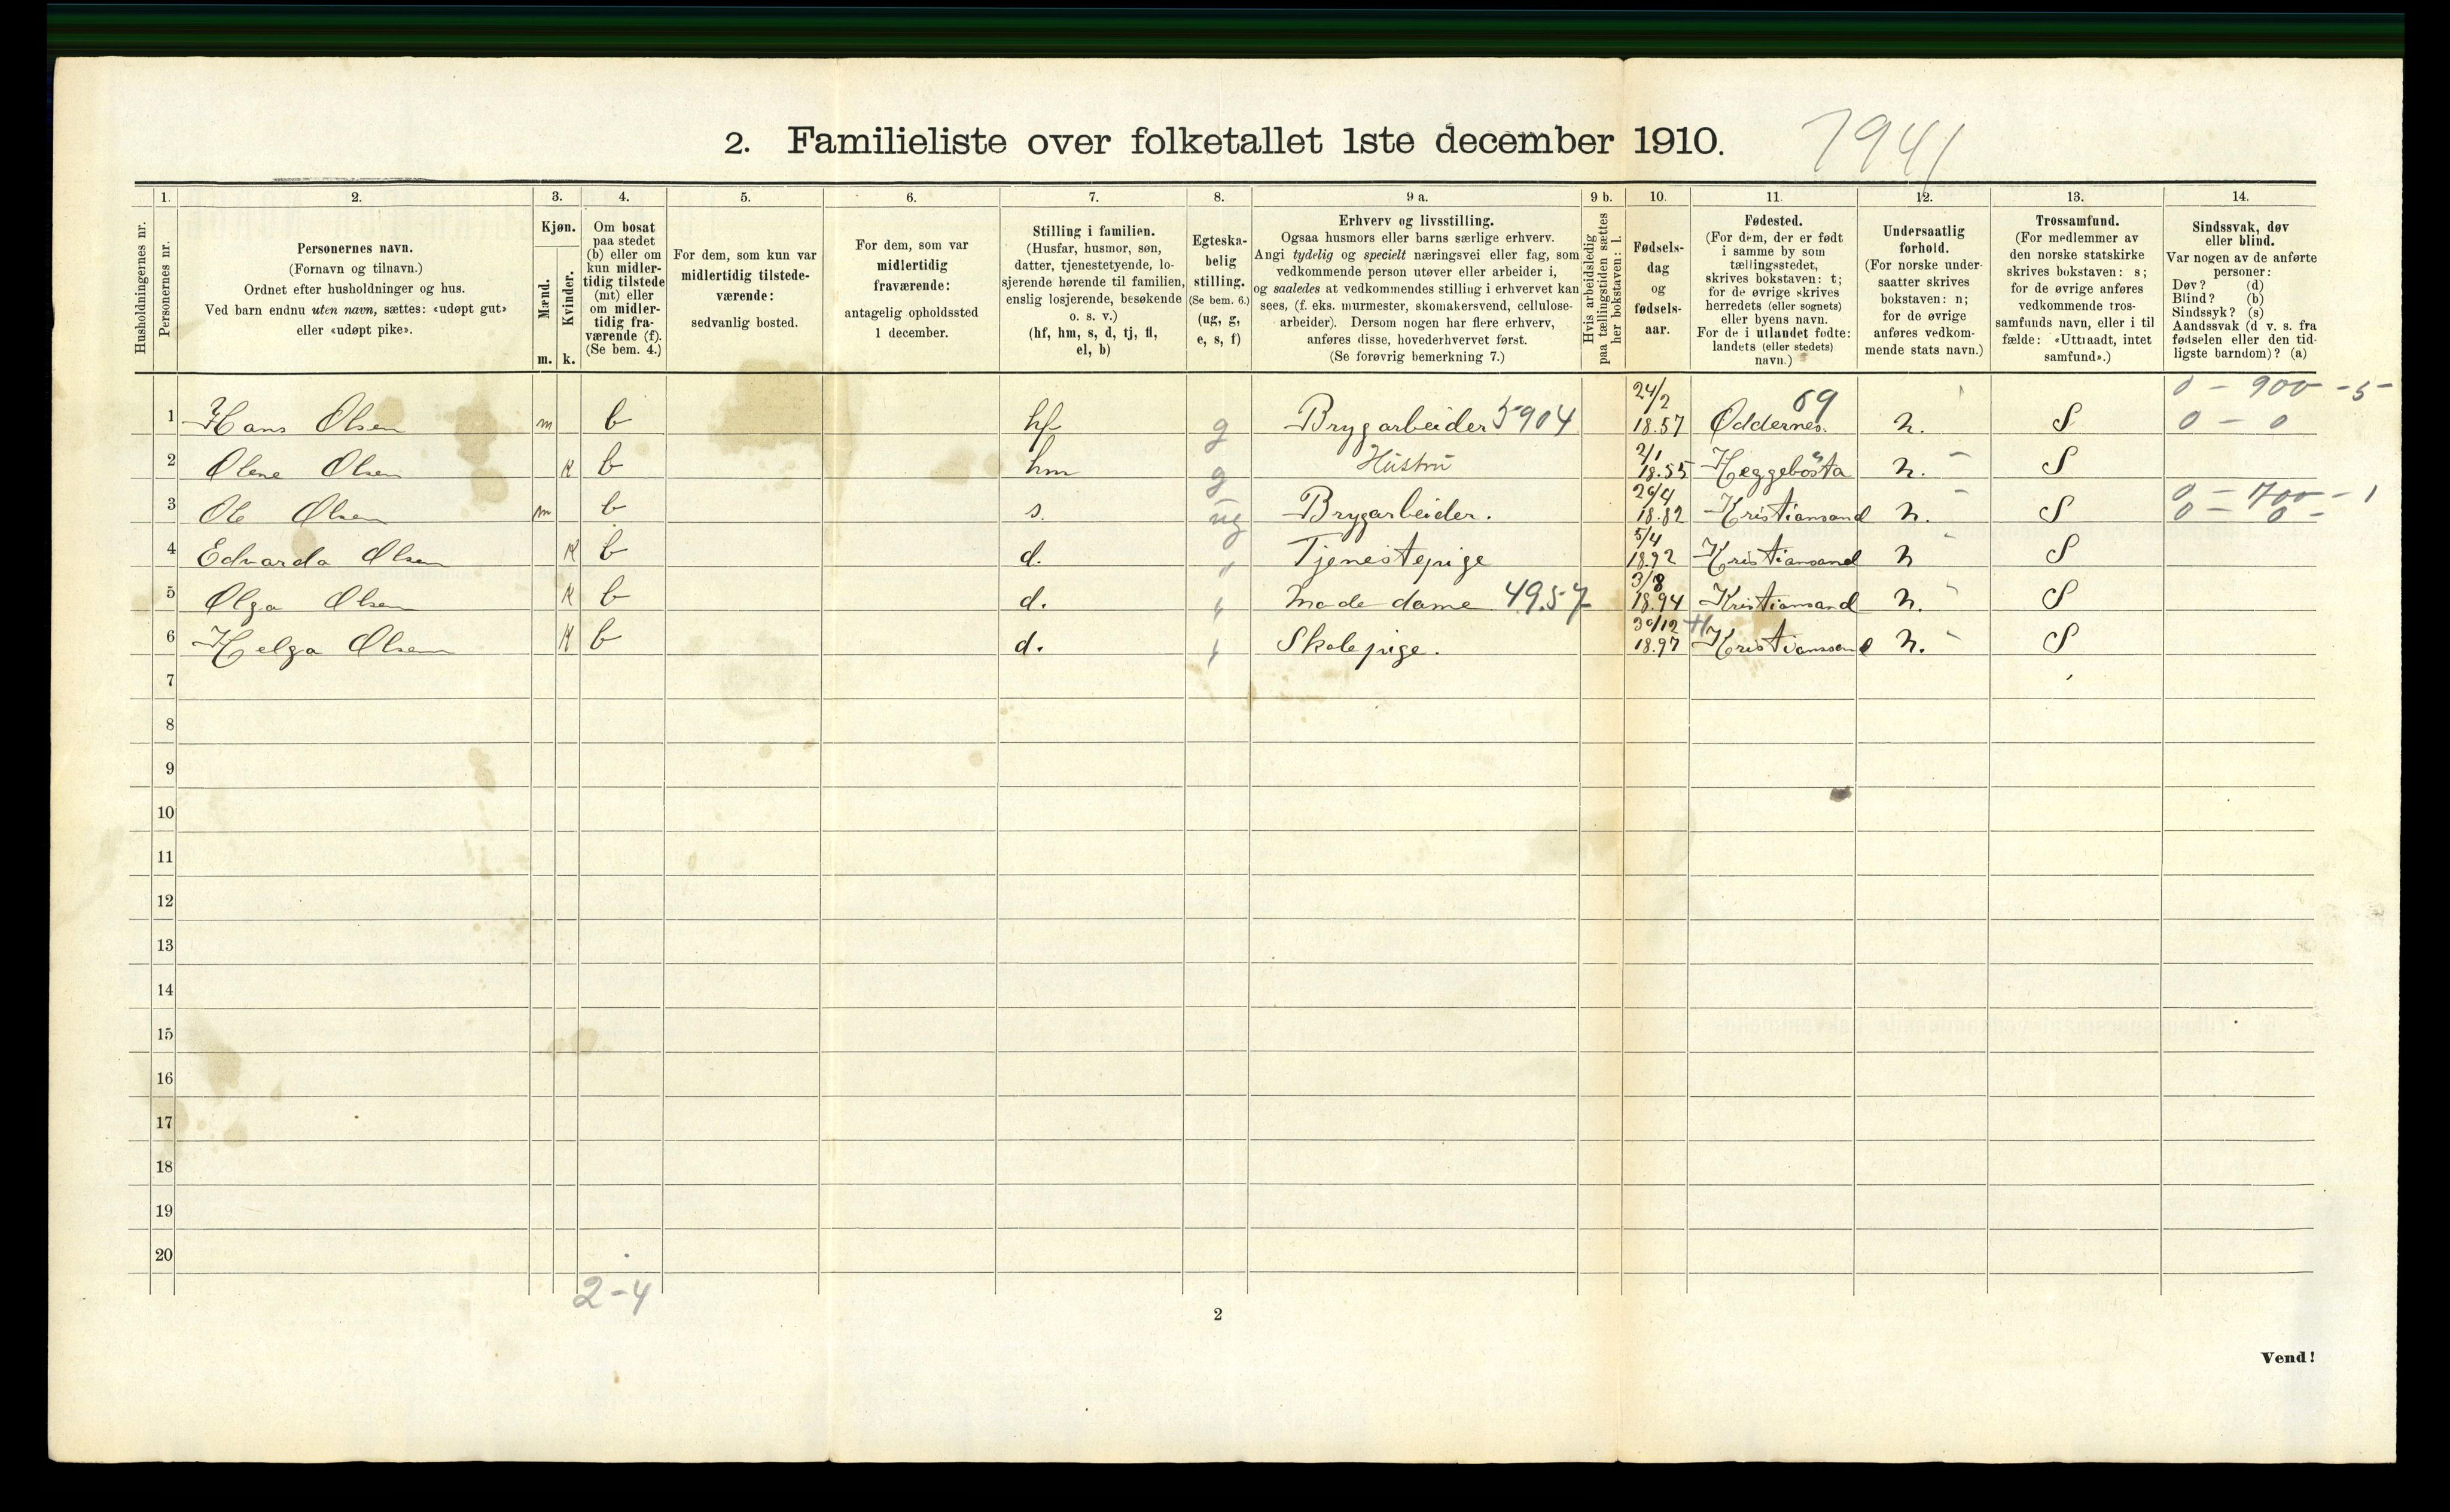 2. Familieliste over folketallet 1ste december 1910.
7941
1. 2. 3. 4. 5. 6. 7. 8. 9 a. 9 b. 10. 11. 12. 13. 14.
Husholdningernes nr.
Personernes nr.
Personernes navn.
(Fornavn og tilnavn.)
Ordnet efter husholdninger og hus.
Ved barn endnu uten navn, sættes: «udøpt gut»
eller «udøpt pike».
Kjøn.
Mænd.
m.
Kvinder.
k.
Om bosat
paa stedet
(b) eller om
kun midler-
tidig tilstede
(mt) eller
om midler-
tidig fra-
værende (f).
(Se bem. 4.)
For dem, som kun var
midlertidig tilstede-
værende:
sedvanlig bosted.
For dem, som var
midlertidig
fraværende:
antagelig opholdssted
1 december.
Stilling i familien.
(Husfar, husmor, søn,
datter, tjenestetyende, lo-
sjerende hørende til familien,
enslig losjerende, besøkende
o. s. v.)
(hf, hm, s, d, tj, fl,
el, b)
Egteska-
belig
stilling.
(Se bem. 6.)
(ug, g,
e, s, f)
Erhverv og livsstilling.
Ogsaa husmors eller barns særlige erhverv.
Angi tydelig og specielt næringsvei eller fag, som
vedkommende person utøver eller arbeider i,
og saaledes at vedkommendes stilling i erhvervet kan
sees, (f. eks. murmester, skomakersvend, cellulose-
arbeider). Dersom nogen har flere erhverv,
anføres disse, hovederhvervet først.
(Se forøvrig bemerkning 7.)
Hvis arbeidsledig
paa tællingstiden sættes
her bokstaven: l.
Fødsels-
dag
og
fødsels-
aar.
Fødested.
(For dem, der er født
i samme by som
tællingsstedet,
skrives bokstaven: t;
for de øvrige skrives
herredets (eller sognets)
eller byens navn.
For de i utlandet fødte:
landets (eller stedets)
navn.)
Undersaatlig
forhold.
(For norske under-
saatter skrives
bokstaven: n;
for de øvrige
anføres vedkom-
mende stats navn.)
Trossamfund.
(For medlemmer av
den norske statskirke
skrives bokstaven: s;
for de øvrige anføres
vedkommende tros-
samfunds navn, eller i til
fælde: «Uttraadt, intet
samfund».)
Sindssvak, døv
eller blind.
Var nogen av de anførte
personer:
Døv? (d)
Blind? (b)
Sindssyk? (s)
Aandssvak (d v. s. fra
fødselen eller den tid-
ligste barndom)? (a)
1 Hans Olsen m b hf g Brygarbeider 5904 24/2 18.57 69 Oddernes. n. S 0 - 900 - 5 - 0 - 0
2 Olene Olsen K b hm g Hüstrü 2/1 18.55 Heggebösta n. S
3 Ole Olsen m b s. ug Brygarbeider. 26/4 18.82 Kristiansand n. S 0 - 700 - 1 0 - 0 -
4 Edvarda Olsen K b d. " Tjenestepige 5/4 18.92 Kristiansand n S
5 Olga Olsen K b d. " Mode dame 49.57 3/8 18.94 Kristiansand n. S
6 Helga Olsen K b d. " Skolepige. 30/12 18.97 Kristianssand n. S
7
8
9
10
11
12
13
14
15
16
17
18
19
20
2-4
2
Vend!